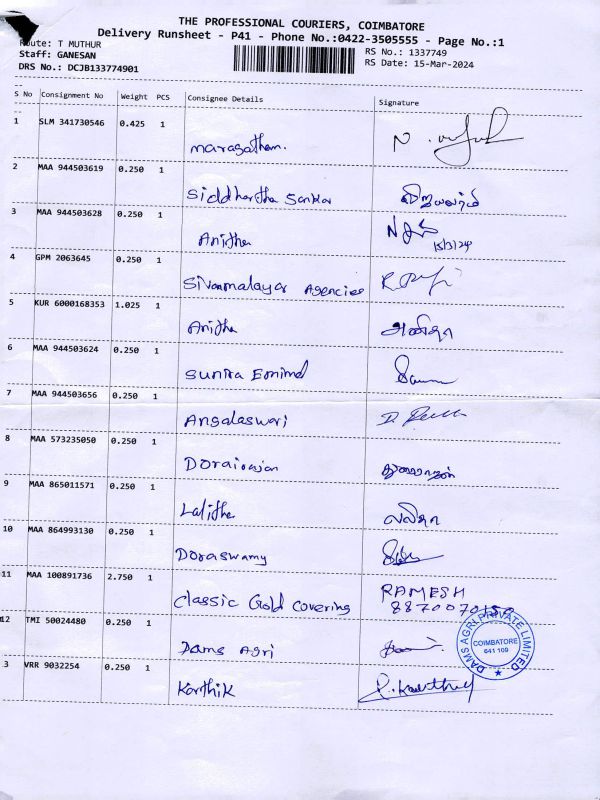 THE PROFESSIONAL COURIERS, COIMBATORE
Delivery Runsheet - P41 - Phone No.:0422-3505555 - Page No.:1
Route: T MUTHUR
RS No.: 1337749
Staff: GANESAN
RS Date: 15-Mar-2024
DRS No.: DCJB133774901
S No Consignment No Weight PCS Consignee Details Signature
1 SLM 341730546 0.425 1
maragatham.
2 MAA 944503619 0.250 1
Siddhartha Sankar
3 MAA 944503628 0.250 1
Anitha
15/3/24
4 GPM 2063645 0.250 1
Sivanmalayar Agencies
5 KUR 6000168353 1.025 1
Anitha அனிதா
6 MAA 944503624 0.250 1
7 MAA 944503656 0.250 1
Angalaswari
8 MAA 573235050 0.250 1
Dorairajan
9 MAA 865011571 0.250 1
Lalitha லலிதா
10 MAA 864993130 0.250 1
Doraswamy
11 MAA 100891736 2.750 1
Classic Gold Covering RAMESH
12 TMI 50024480 0.250 1
Dams Agri
DAMS AGRI PRIVATE LIMITED
COIMBATORE
641 109
3 VRR 9032254 0.250 1
Karthik